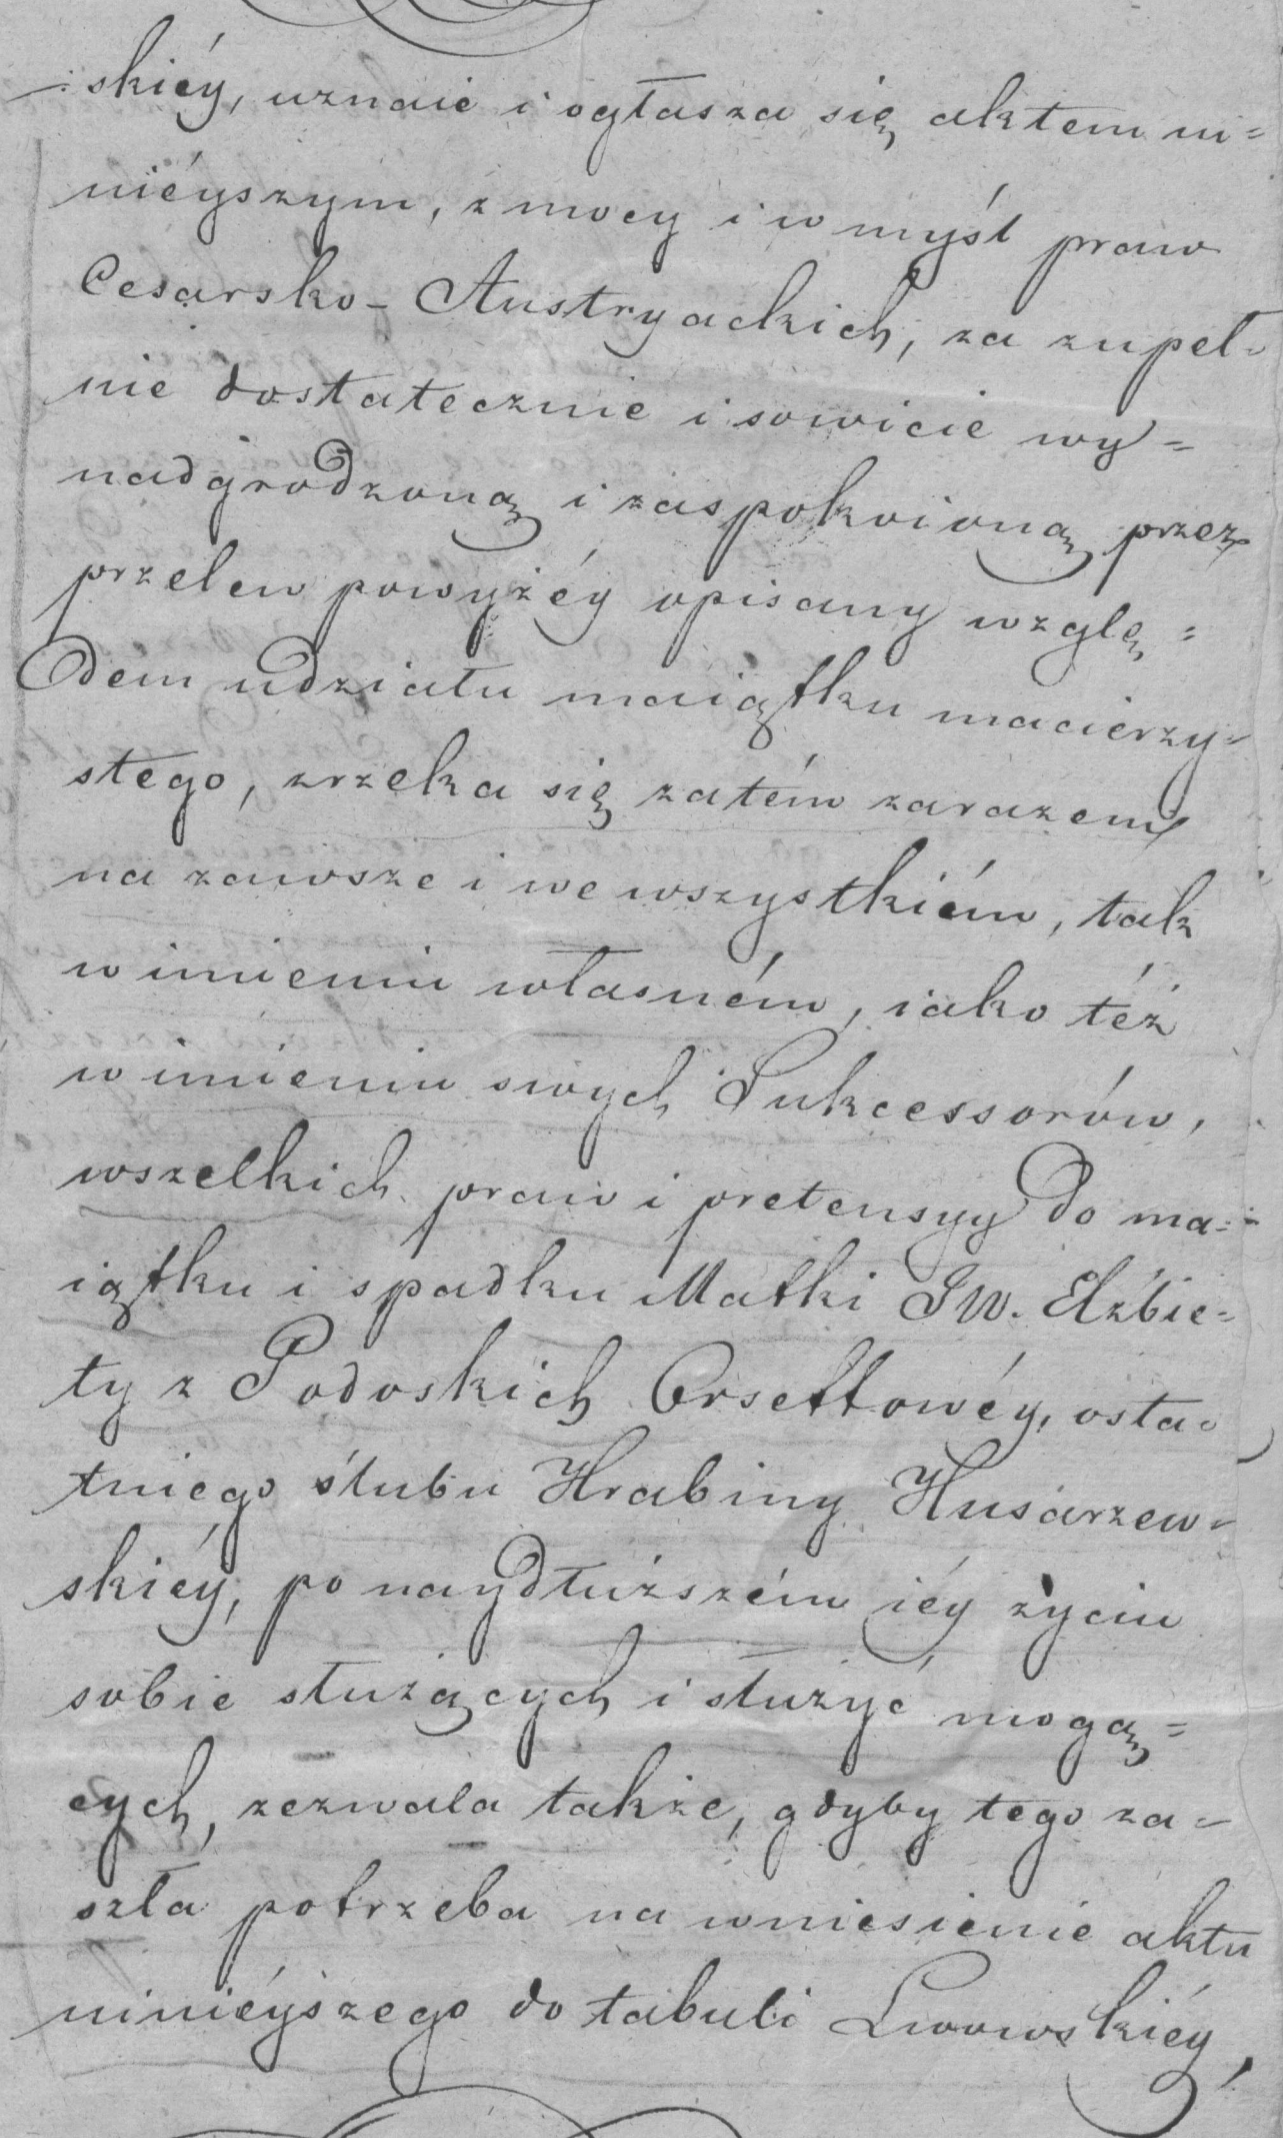 -skiéy, uznaie i ogłasza się aktem ni=
nieyszym, z mocy i w myśl praw
Cesarsko-Austryackich, za zupeł=
nie dostatecznie i sowicie wy=
nadgrodzoną i zaspokoioną przez
przelew powyżéy opisany wzglę=
dem udziału maiątku macierzy=
stego, zrzeka się zatém zarazem
na zawsze i we wszystkiém, tak
w imieniu własném, iako téż
w imieniu swych Sukcessorów,
wszelkich praw i pretensyy do ma=
iątku i spadku Matki JW. Elżbie=
ty z Podoskich Orsettowéy, osta=
tniego ślubu Hrabiny Husarzew=
skiéy, po naydłuższém iéy życiu
sobie służących i służyć mogą=
cych, zezwala także, gdyby tego za=
szła potrzeba na wniesienie aktu
ninieyszego do tabuli Lwowskiéy,